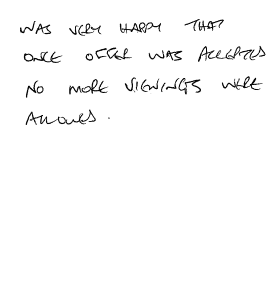 WAS VERY HAPPY THAT
ONCE OFFER WAS ACCEPTED
NO MORE VIEWINGS WERE
ALLOWED.